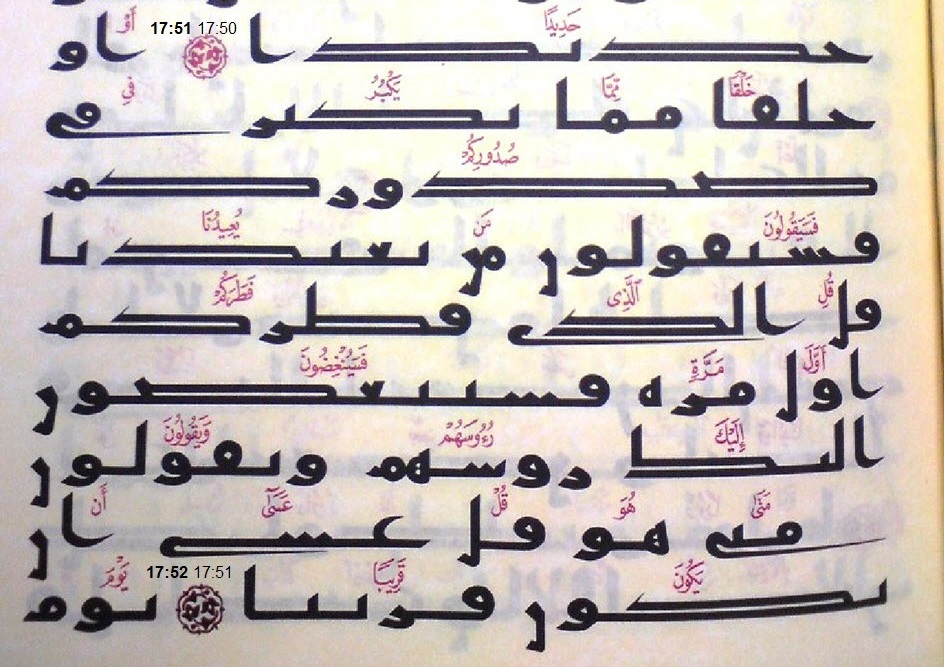 حَدِيدًا 17:51 17:50 أَوْ
حديدا او
خَلْقًا مِّمَّا يَكْبُرُ فِى
خلقا مما يكبر في
صُدُورِكُمْ
صدوركم
فَسَيَقُولُونَ مَن يُعِيدُنَا
فسيقولون من يعيدنا
قُلِ ٱلَّذِى فَطَرَكُمْ
قل الذي فطركم
أَوَّلَ مَرَّةٍ فَسَيُنْغِضُونَ
اول مره فسينغضون
إِلَيْكَ رُءُوسَهُمْ وَيَقُولُونَ
اليك روسهم ويقولون
مَتَىٰ هُوَ قُلْ عَسَىٰ أَن
متى هو قل عسى ان
يَكُونَ قَرِيبًا 17:52 17:51 يَوْمَ
يكون قريبا يوم